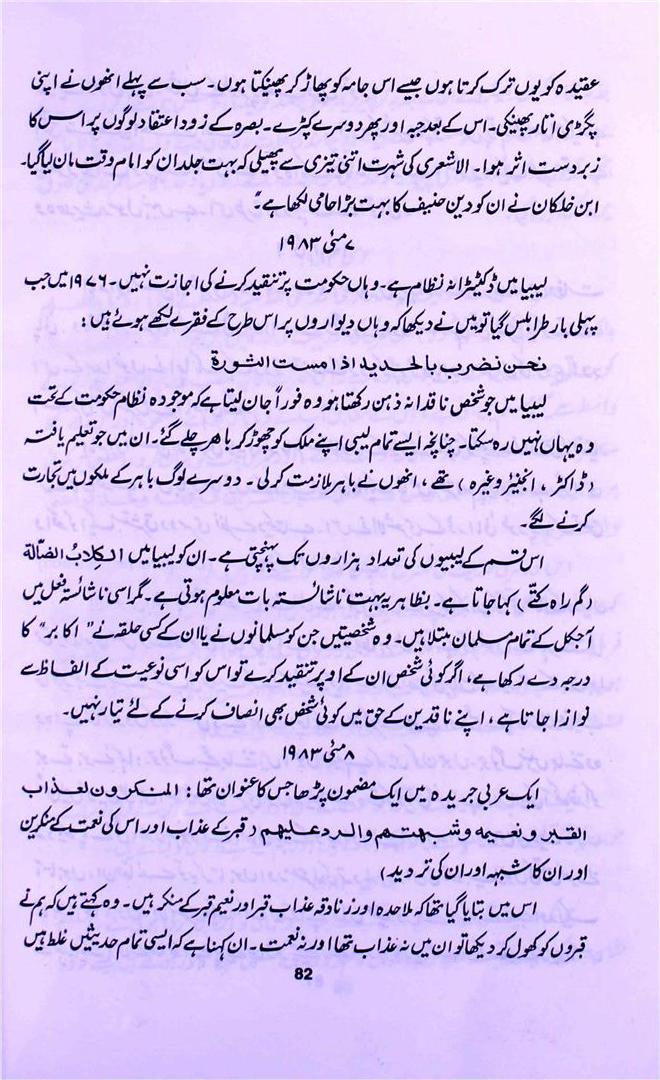 عقیدہ کو یوں ترک کرتا ہوں جیسے اس جامہ کو پھاڑ کر پھینکتا ہوں۔ سب سے پہلے انھوں نے اپنی
پگڑی اتار پھینکی۔ اس کے بعد جبہ اور پھر دوسرے کپڑے۔ بصرہ کے زود اعتقاد لوگوں پر اس کا
زبردست اثر ہوا۔ الاشعری کی شہرت اتنی تیزی سے پھیلی کہ بہت جلد ان کو امام وقت مان لیا گیا۔
ابن خلکان نے ان کو دین حنیف کا بہت بڑا حامی لکھا ہے۔
۷ مئی ۱۹۸۳
لیبیا میں ڈکٹیٹرانہ نظام ہے۔ وہاں حکومت پر تنقید کرنے کی اجازت نہیں۔ ۱۹۷۶ میں جب
پہلی بار طرابلس گیا تو میں نے دیکھا کہ وہاں دیواروں پر اس طرح کے فقرے لکھے ہوئے ہیں:
نحن نضرب بالحدید اذا مست الثورة
لیبیا میں جو شخص ناقدانہ ذہن رکھتا ہو وہ فوراً جان لیتا ہے کہ موجودہ نظام حکومت کے تحت
وہ یہاں نہیں رہ سکتا۔ چنانچہ ایسے تمام لیبی اپنے ملک کو چھوڑ کر باہر چلے گئے۔ ان میں جو تعلیم یافتہ
(ڈاکٹر، انجینئر وغیرہ) تھے، انھوں نے باہر ملازمت کرلی۔ دوسرے لوگ باہر کے ملکوں میں تجارت
کرنے لگے۔
اس قسم کے لیبیوں کی تعداد ہزاروں تک پہنچتی ہے۔ ان کو لیبیا میں الکلابُ الضالّة
(گم راہ کتے) کہا جاتا ہے۔ بظاہر یہ بہت ناشائستہ بات معلوم ہوتی ہے۔ مگر اسی ناشائستہ فعل میں
آجکل کے تمام مسلمان مبتلا ہیں۔ وہ شخصیتیں جن کو مسلمانوں نے یا ان کے کسی حلقہ نے "اکابر" کا
درجہ دے رکھا ہے، اگر کوئی شخص ان کے اوپر تنقید کرے تو اس کو اسی نوعیت کے الفاظ سے
نوازا جاتا ہے، اپنے ناقدین کے حق میں کوئی شخص بھی انصاف کرنے کے لئے تیار نہیں۔
۸ مئی ۱۹۸۳
ایک عربی جریدہ میں ایک مضمون پڑھا جس کا عنوان تھا: المنکرون لعذاب
القبر و نعیمه و شبهتهم والرد علیهم (قبر کے عذاب اور اس کی نعمت کے منکرین
اور ان کا شبہہ اور ان کی تردید)
اس میں بتایا گیا تھا کہ ملاحدہ اور زنادقہ عذاب قبر اور نعیم قبر کے منکر ہیں۔ وہ کہتے ہیں کہ ہم نے
قبروں کو کھول کر دیکھا تو ان میں نہ عذاب تھا اور نہ نعمت۔ ان کہنا ہے کہ ایسی تمام حدیثیں غلط ہیں
82